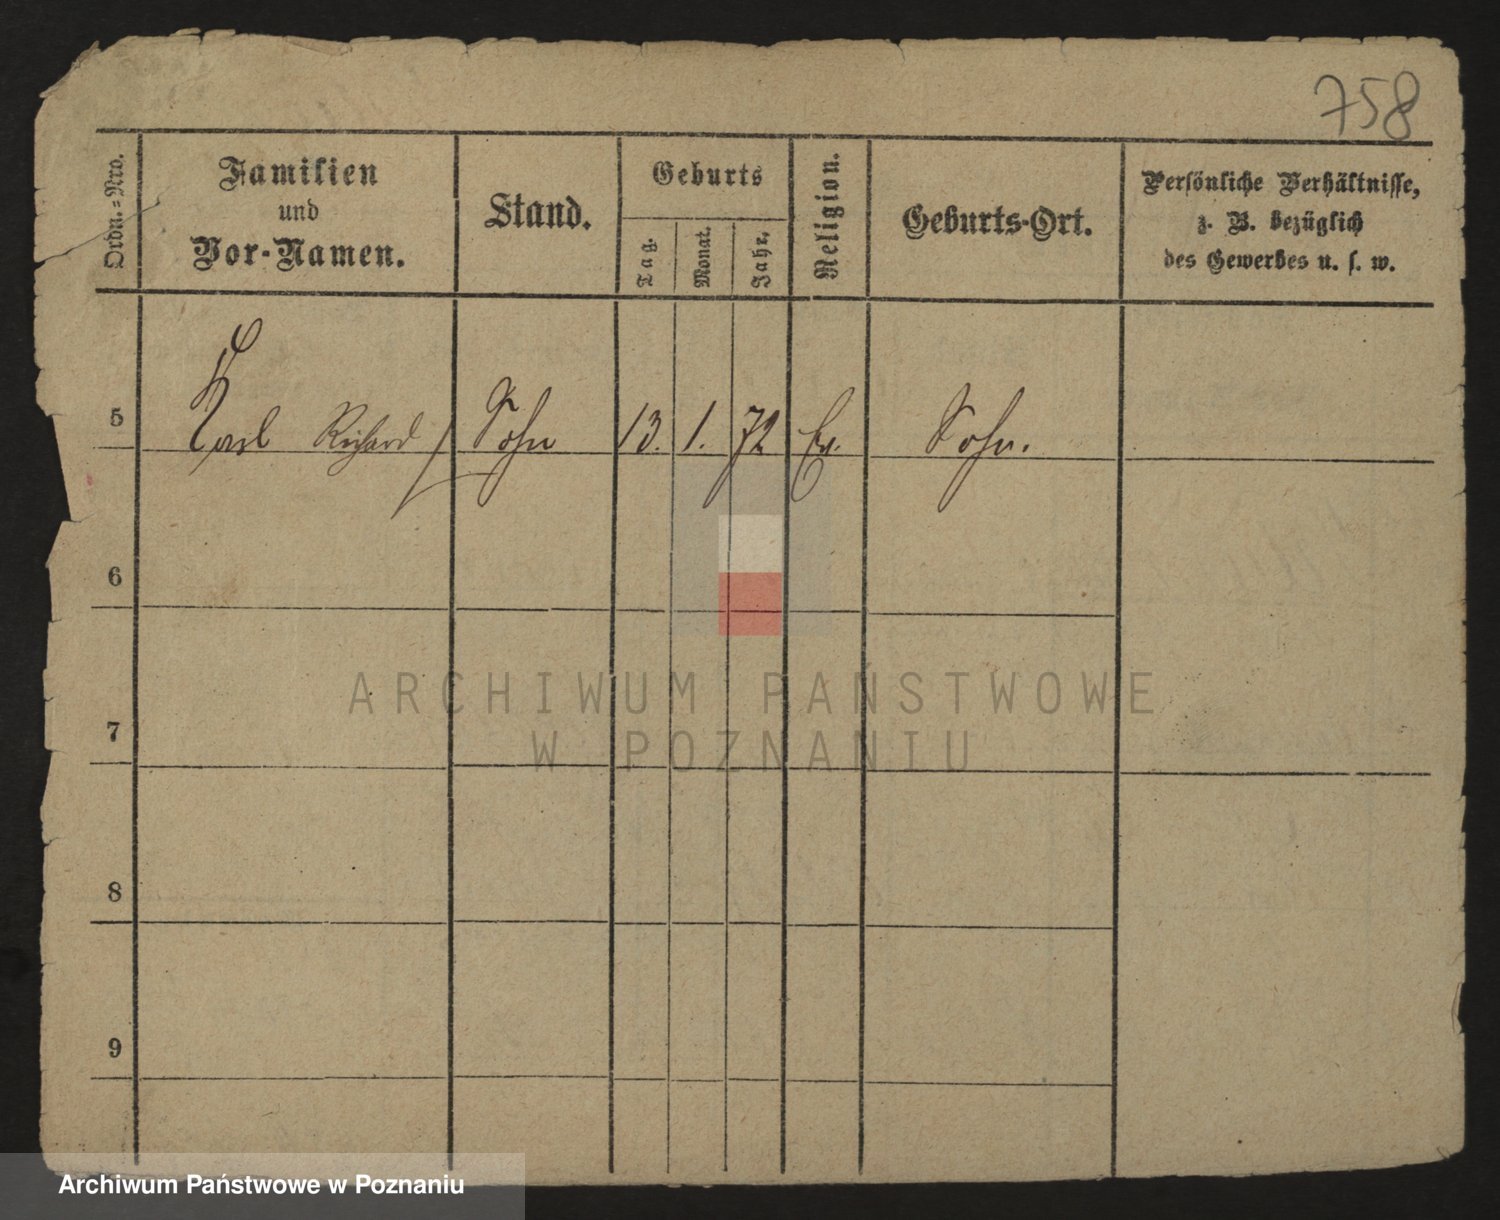 758
Ordn.-Nro.
Familien
und
Vor-Namen.
Stand.
Geburts
Tag.
Monat.
Jahr.
Religion.
Geburts-Ort.
Persönliche Verhältnisse,
z. B. bezüglich
des Gewerbes u. s. w.
5 Karl Richard Sohn 13. 1. 72 Ev.
6
7
8
9
ARCHIWUM PAŃSTWOWE
W POZNANIU
Archiwum Państwowe w Poznaniu